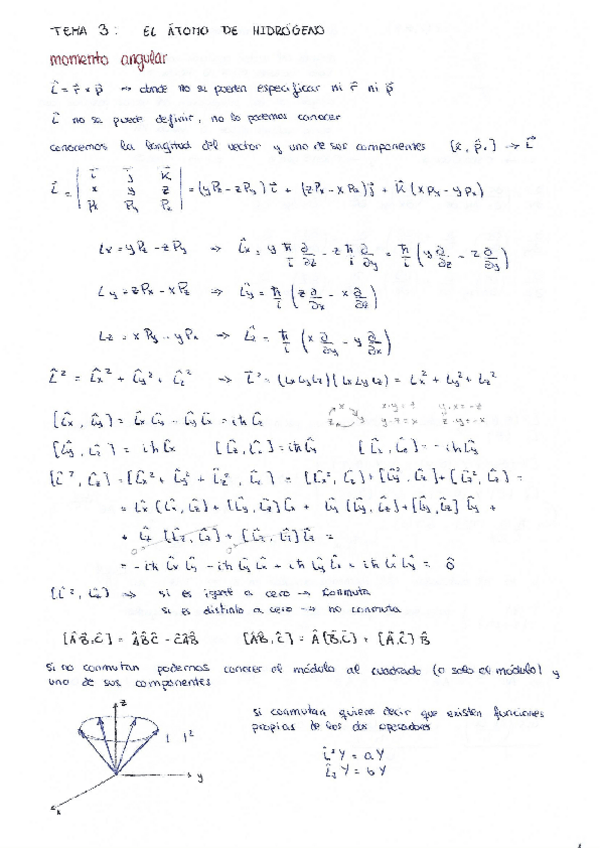 TEMA 3: EL ÁTOMO DE HIDRÓGENO
momento angular
L̂ = r⃗ × p⃗ → donde no se pueden especificar ni r⃗ ni p⃗
L⃗ no se puede definir, no lo podemos conocer
conocemos la longitud del vector y uno de sus componentes [x̂, p̂ₓ] → L⃗
L⃗ = | i⃗ j⃗ k⃗ | x y z | Px Py Pz | = (yPz - zPy) i⃗ + (zPx - xPz) j⃗ + k⃗ (xPy - yPx)
Lx = yPz - zPy → L̂x = y ħ/i ∂/∂z - z ħ/i ∂/∂y = ħ/i (y ∂/∂z - z ∂/∂y)
Ly = zPx - xPz → L̂y = ħ/i (z ∂/∂x - x ∂/∂z)
Lz = xPy - yPx → L̂z = ħ/i (x ∂/∂y - y ∂/∂x)
L̂² = L̂x² + L̂y² + L̂z² → L̄² = (Lx Ly Lz)(Lx Ly Lz) = Lx² + Ly² + Lz²
[L̂x, L̂y] = L̂x L̂y - L̂y L̂x = iħ L̂z x·y=z y·x=-z
[L̂y, L̂z] = iħ L̂x [L̂z, L̂x] = iħ L̂y [L̂x, L̂z] = -iħ L̂y x y z y·z=x z·y=-x
[L̂², L̂z] = [L̂x² + L̂y² + L̂z², L̂z] = [L̂x², L̂z] + [L̂y², L̂z] + [L̂z², L̂z] =
= L̂x [L̂x, L̂z] + [L̂x, L̂z] L̂x + L̂y [L̂y, L̂z] + [L̂y, L̂z] L̂y +
+ L̂z [L̂z, L̂z] + [L̂z, L̂z] L̂z =
= -iħ L̂x L̂y - iħ L̂y L̂x + iħ L̂y L̂x + iħ L̂x L̂y = 0̂
[L̂², L̂z] → si es igual a cero → conmuta
si es distinto a cero → no conmuta
[ÂB̂, Ĉ] = ÂB̂Ĉ - ĈÂB̂ [ÂB̂, Ĉ] = Â[B̂, Ĉ] + [Â, Ĉ] B̂
si no conmutan podemos conocer el módulo al cuadrado (o solo el módulo) y
uno de sus componentes
z
y
x
si conmutan quiere decir que existen funciones
propias de los dos operadores
L̂² Y = aY
L̂z Y = bY